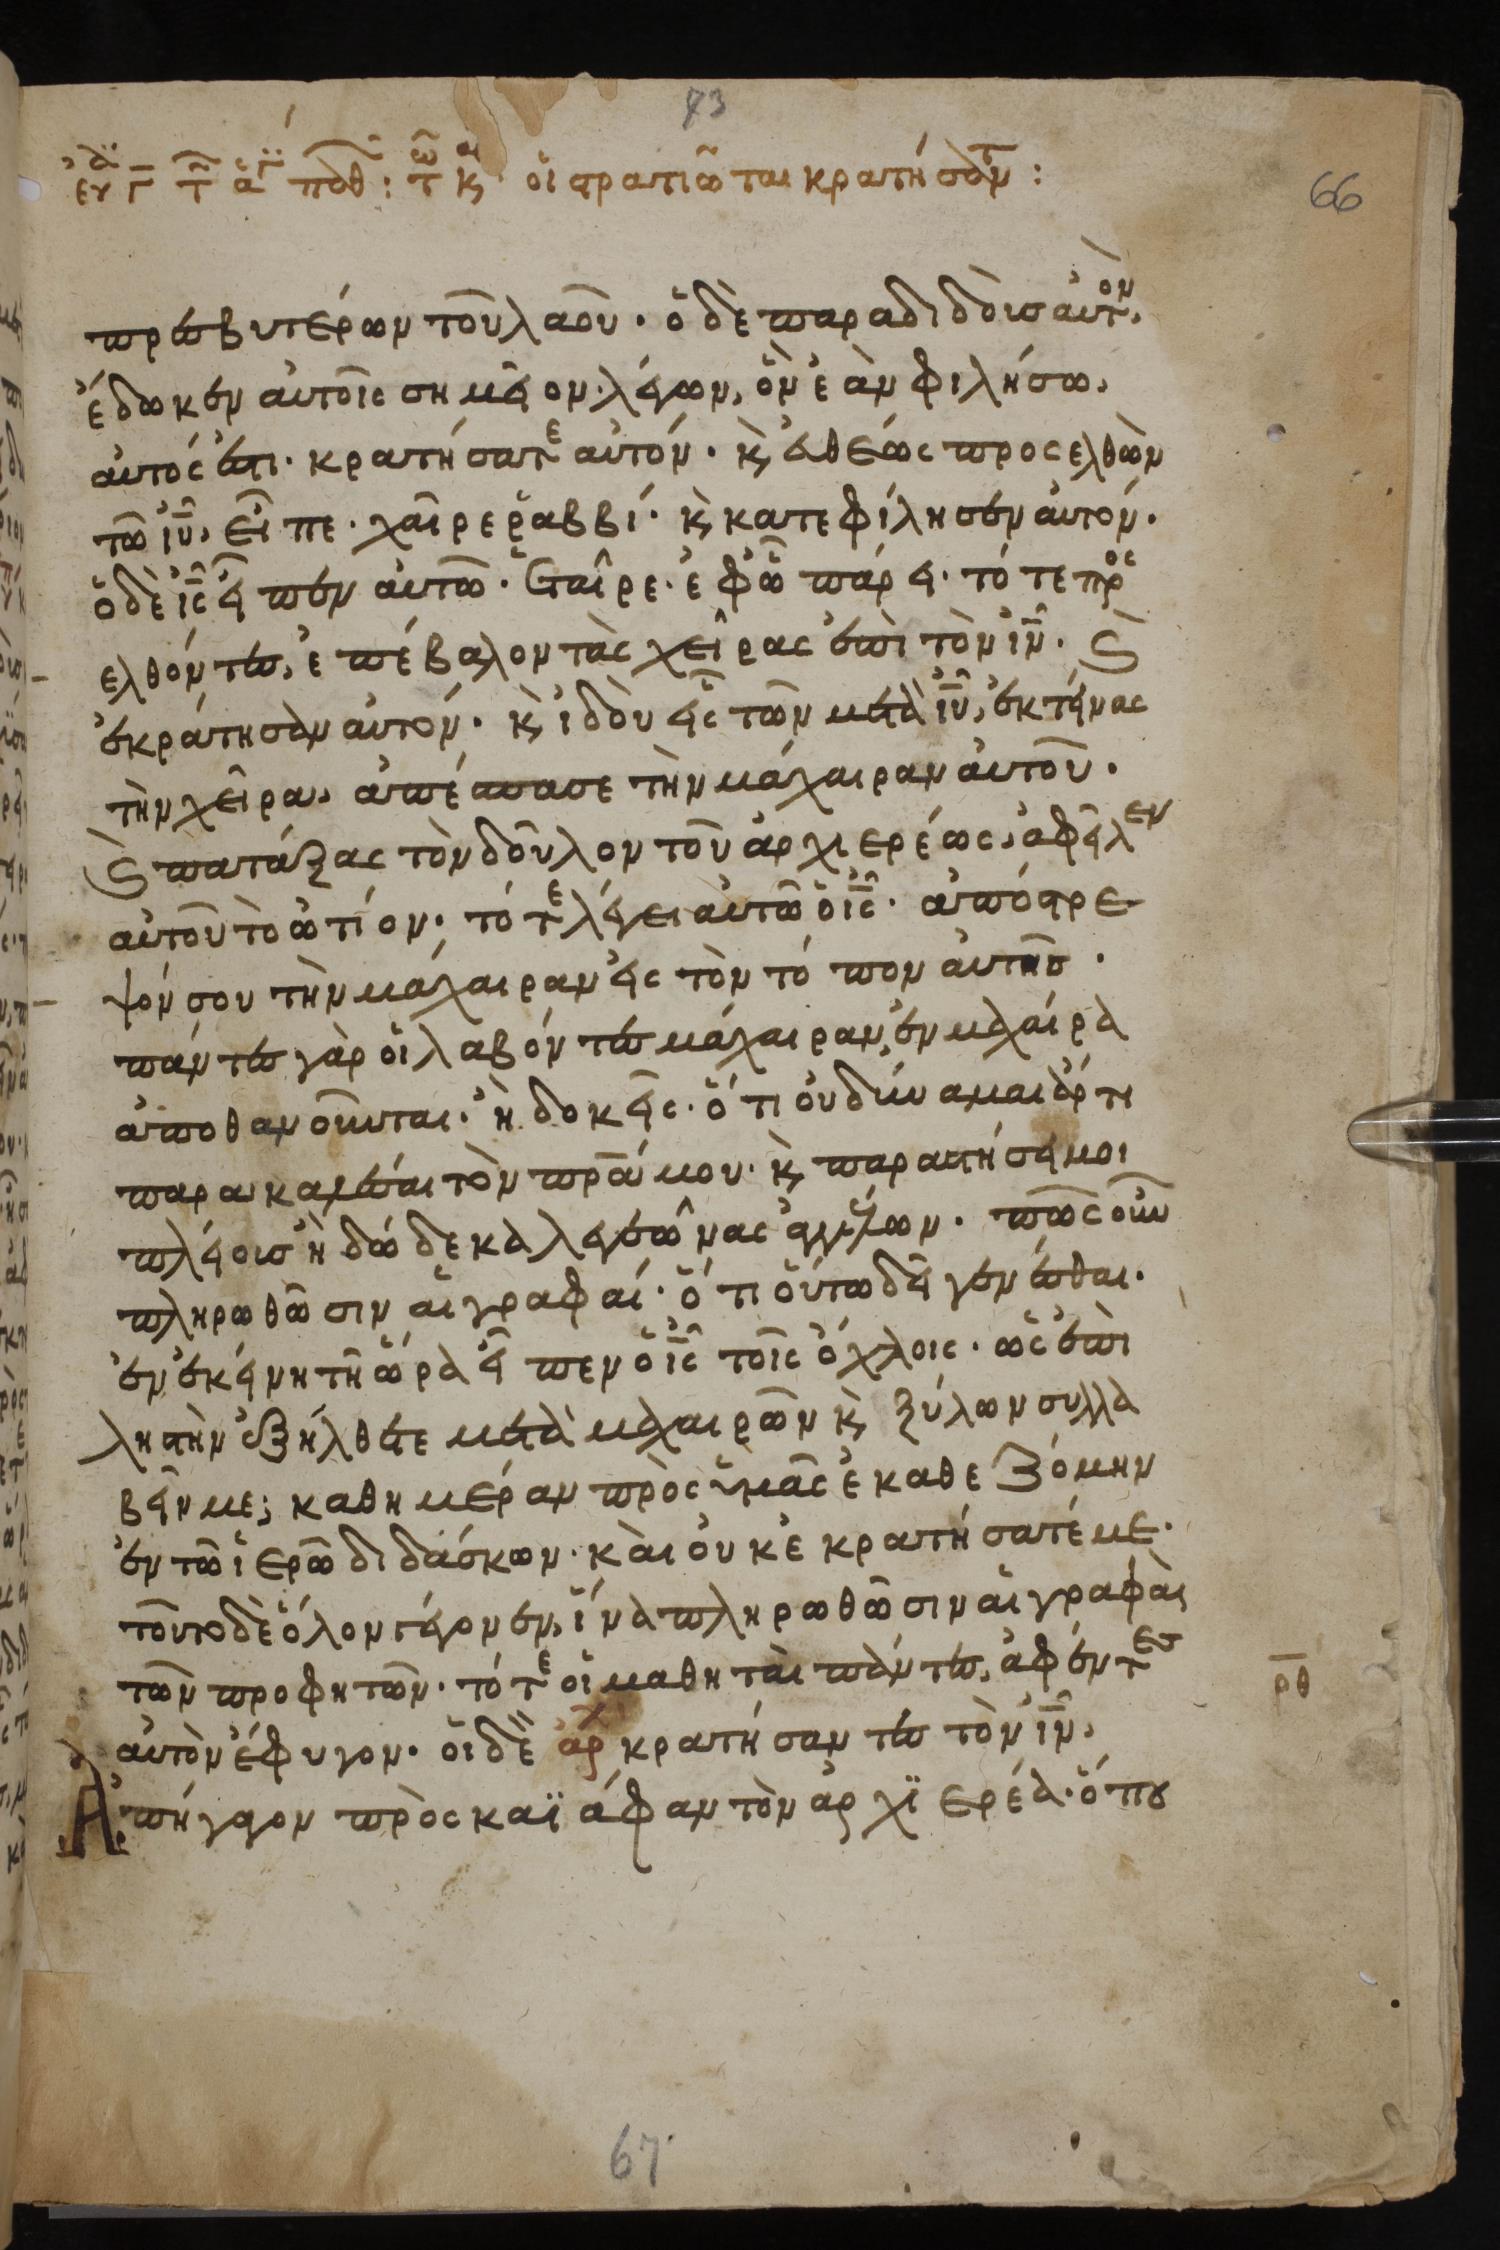 73
66
εὐα γ τ ἁγ παθ: τω κω οἱ στρατιῶται κρατήσαντ:
πρεσβυτέρων τοῦ λαοῦ. ὁ δὲ παραδιδοὺς αὐτὸν,
ἔδωκεν αὐτοῖς σημεῖον. λέγων, ὃν ἐὰν φιλήσω,
αὐτός ἐστι. κρατήσατε αὐτόν. κὶ εὐθέως προσελθὼν
τῶ ιυ, εἶπε. χαῖρε ῥαββί. κὶ κατεφίλησεν αὐτόν.
ὁ δὲ ις εἶπεν αὐτῶ. ἑταῖρε. ἐφ' ὧ πάρει. τότε προς
ελθόντες, ἐπέβαλον τὰς χεῖρας ἐπὶ τὸν ιν. κὶ
ἐκράτησαν αὐτόν. κὶ ἰδοὺ εἷς τῶν μετὰ ιυ, ἐκτείνας
τὴν χεῖρα, ἀπέσπασε τὴν μάχαιραν αὐτοῦ.
κὶ πατάξας τὸν δοῦλον τοῦ ἀρχιερέως, ἀφεῖλεν
αὐτοῦ τὸ ὠτίον. τότε λέγει αὐτῶ ὁ ις. ἀπόστρε
ψόν σου τὴν μάχαιραν εἰς τὸν τόπον αὐτῆς.
πάντες γὰρ οἱ λαβόντες μάχαιραν, ἐν μαχαίρα
ἀποθανοῦνται. ἢ δοκεῖς. ὅτι οὐ δύναμαι ἄρτι
παρακαλέσαι τὸν πρα μου. κὶ παραστήσει μοι
πλείους ἢ δώδεκα λεγεῶνας ἀγγέλων. πῶς οὖν
πληρωθῶσιν αἱ γραφαί. ὅτι οὕτω δεῖ γενέσθαι.
ἐν ἐκείνη τῆ ὥρα εἶπεν ὁ ις τοῖς ὄχλοις. ὡς ἐπὶ
ληστὴν ἐξήλθατε μετὰ μαχαιρῶν κὶ ξύλων συλλα
βεῖν με; καθημέραν πρὸς ὑμᾶς ἐκαθεζόμην
ἐν τῶ ἱερῶ διδάσκων. καὶ οὐκ ἐκρατήσατέ με.
τοῦτο δὲ ὅλον γέγονεν, ἵνα πληρωθῶσιν αἱ γραφαὶ
τῶν προφητῶν. τότε οἱ μαθηταὶ πάντες, ἀφέντες
αὐτὸν ἔφυγον. οἱ δὲ ἀρχ κρατήσαντες τὸν ιν,
Ἀπήγαγον πρὸς καϊάφαν τὸν ἀρχϊερέα. ὅπου
ρθ
67